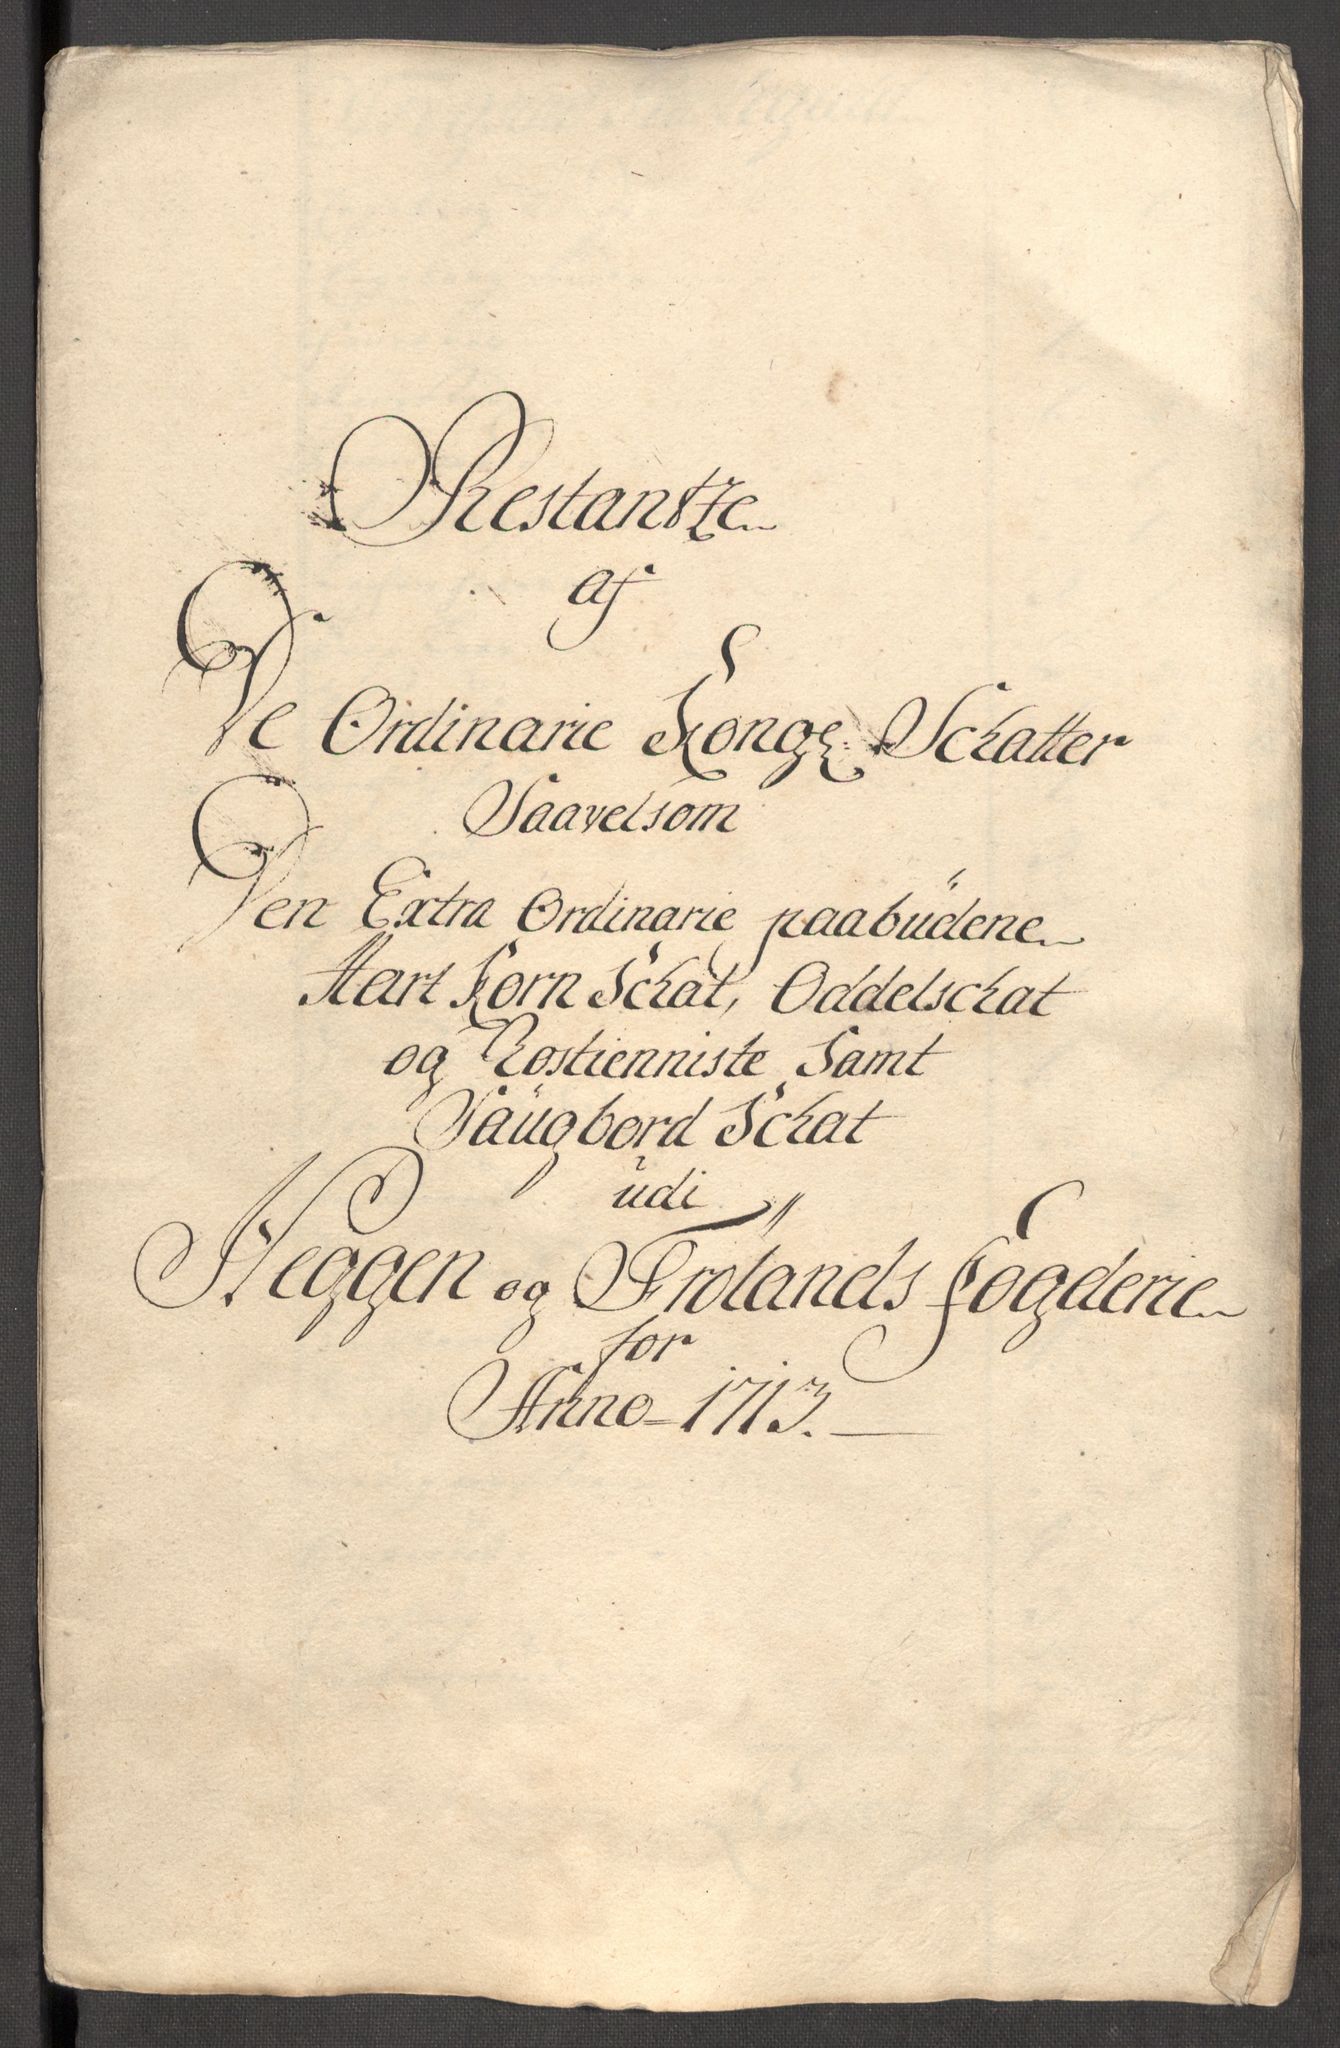 Restantze
af
De Ordinarie Konge Schatter
Saavelsom
Den Extra Ordinarie paabüdene
Hart Korn Schat, Oddelschat
og Rostienniste Samt
Saügbord Schat
üdi
Heggen og Frølands Fogderie
for
Anno 1713.